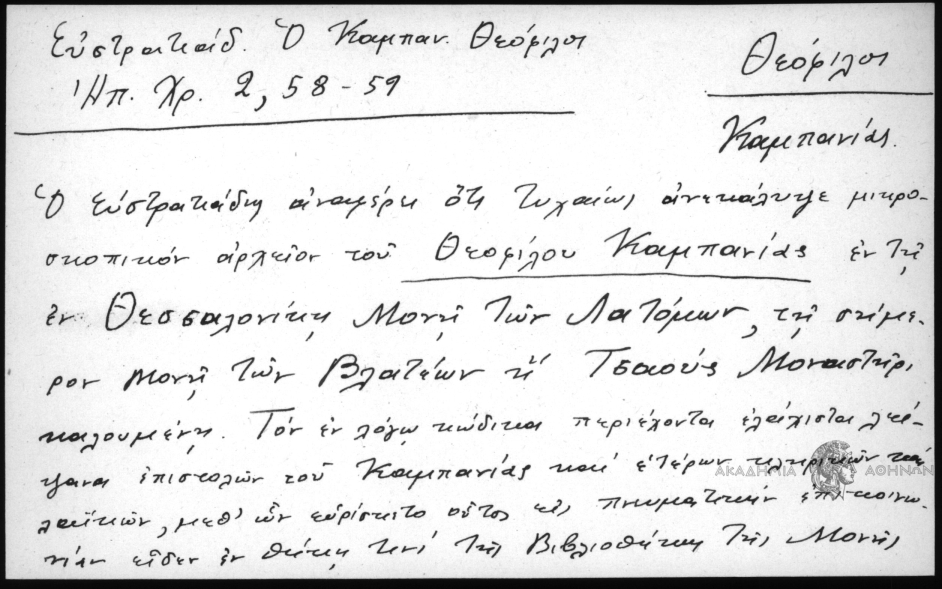 Εὐστρατιάδ. Ὁ Καμπαν. Θεόφιλος
Ἠπ. Χρ. 2, 58-59
Θεόφιλος
Καμπανίας.
Ὁ Εὐστρατιάδης ἀναφέρει ὅτι τυχαίως ἀνεκάλυψε μικρο-
σκοπικόν ἀρχεῖον τοῦ Θεοφίλου Καμπανίας ἐν τῇ
ἐν Θεσσαλονίκῃ Μονῇ τῶν Λατόμων, τῇ σήμε-
ρον Μονῇ τῶν Βλατέων ἤ Τσαούς Μοναστήρι
καλουμένῃ. Τόν ἐν λόγῳ κώδικα περιέχοντα ἐλάχιστα λεί-
ψανα ἐπιστολῶν τοῦ Καμπανίας καί ἑτέρων κληρικῶν καί
λαϊκῶν, μεθ' ὧν εὑρίσκετο οὗτος εἰς πνευματικήν ἐπικοινω-
νίαν εἶδεν ἐν θήκῃ τινί τῆς Βιβλιοθήκης τῆς Μονῆς
ΑΚΑΔΗΜΙΑ ΑΘΗΝΩΝ